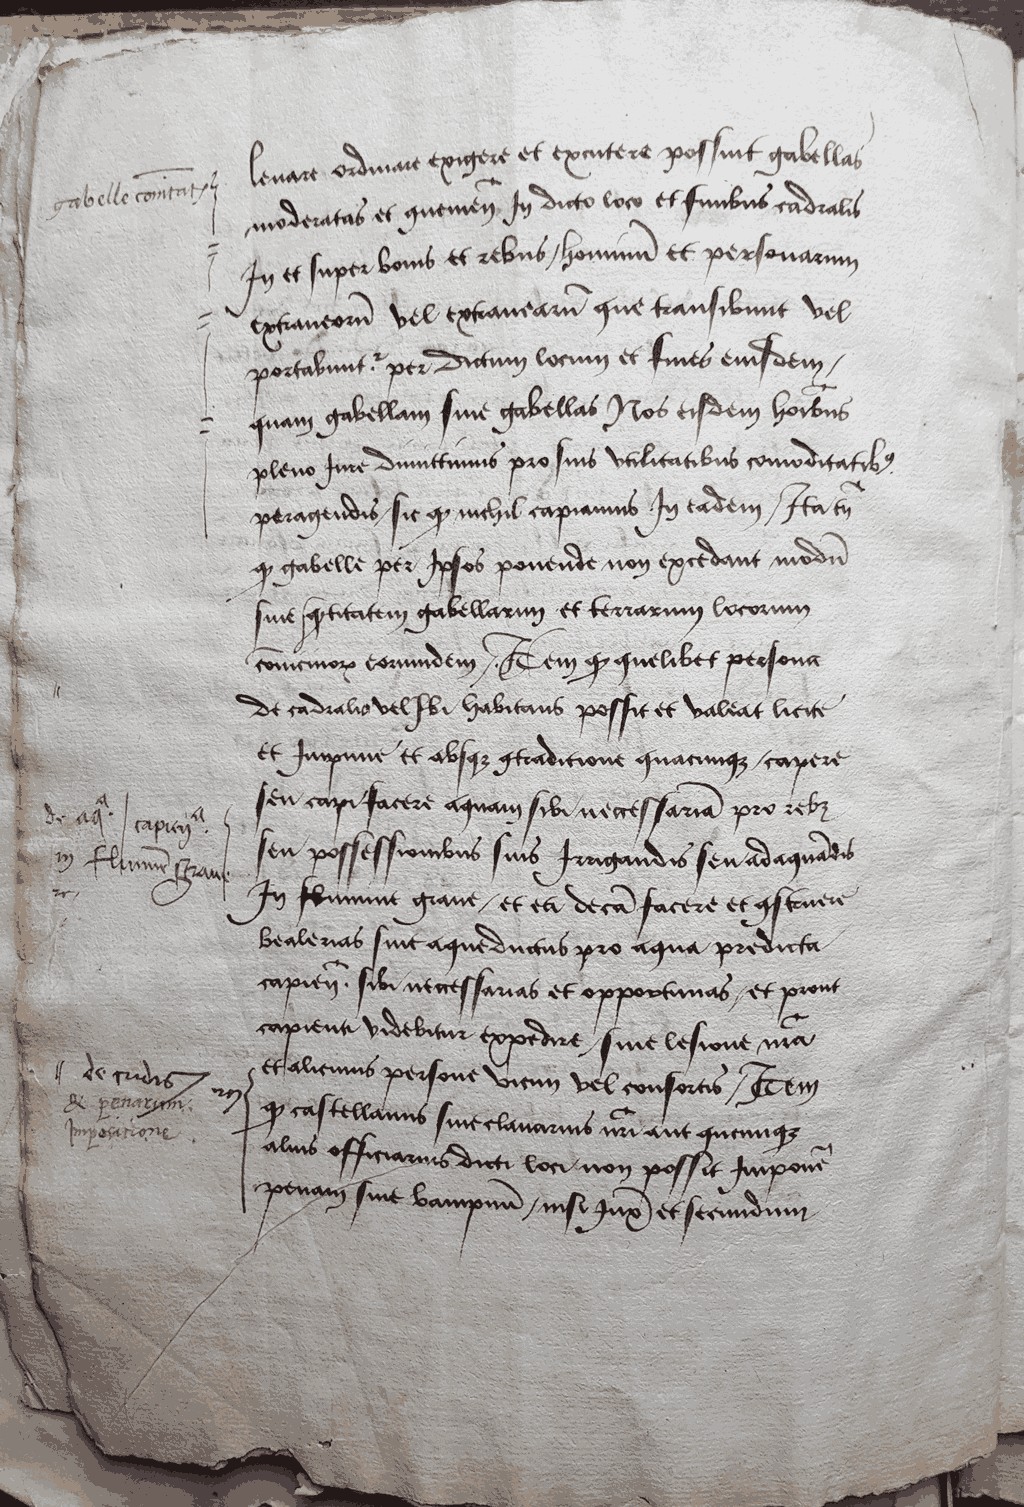 gabelle com̄itatꝝ
levare ordinare exigere et excutere possint gabellas
moderatas et quemēn̄ In dicto loco et finibus cadralis
In et super bonis et rebus / hominū et personarum
extraneorū vel extranearū que transibunt vel
portabunt.ᵗ per dictum locum et fines eiusdem /
quam gabellam sive gabellas Nos eisdem hoībus
pleno Jure dimittimus pro suis utilitatibus comoditatibꝰ
peragendis / sic ꝙ nichil capiamus In eadem / Ita tn̄
ꝙ gabelle per Ipsos ponende non excedant modū
sive q̄ntitatem gabellarum et terrarum locorum
cōvicinoꝝ eorumdem / Item ꝙ quelibet persona
de cadralio vel Ibi habitans possit et valeat licite
et Impune et absqꝫ ꝯtraditione quacumqꝫ / capere
seu capi facere aquam sibi neccessariā pro rebꝫ
seu possessionibus suis Irrigandis seu adaquādis
In flumine grane / et eti decā facere et ꝯstruere
bealerias sive aqueductus pro aqua predicta
capien̄. sibi neccessarias et opportunas / et prout
capienti videbitur expedire / sine lesione nr̄a
et alicuius persone vicini vel consortis / Item
ꝙ castellanus sive clavarius nr̄i aut quicumqꝫ
alius officiarius dicti loci non possit Imponē
penam sive bampnū / nisi Juxᵃ et secundum
de aqᵃ. capienᵃ.
in flumine grane
de cridis
& penarum
Impositione.